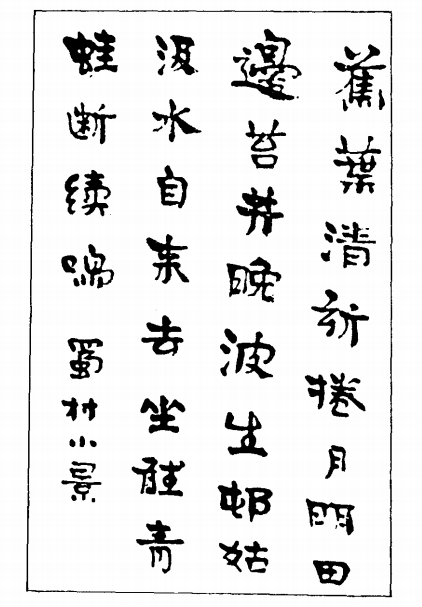 蕉葉清新捲月明田
邊苔井晚波生邨姑
汲水自来去坐聽青
蛙断續鳴 蜀村小景